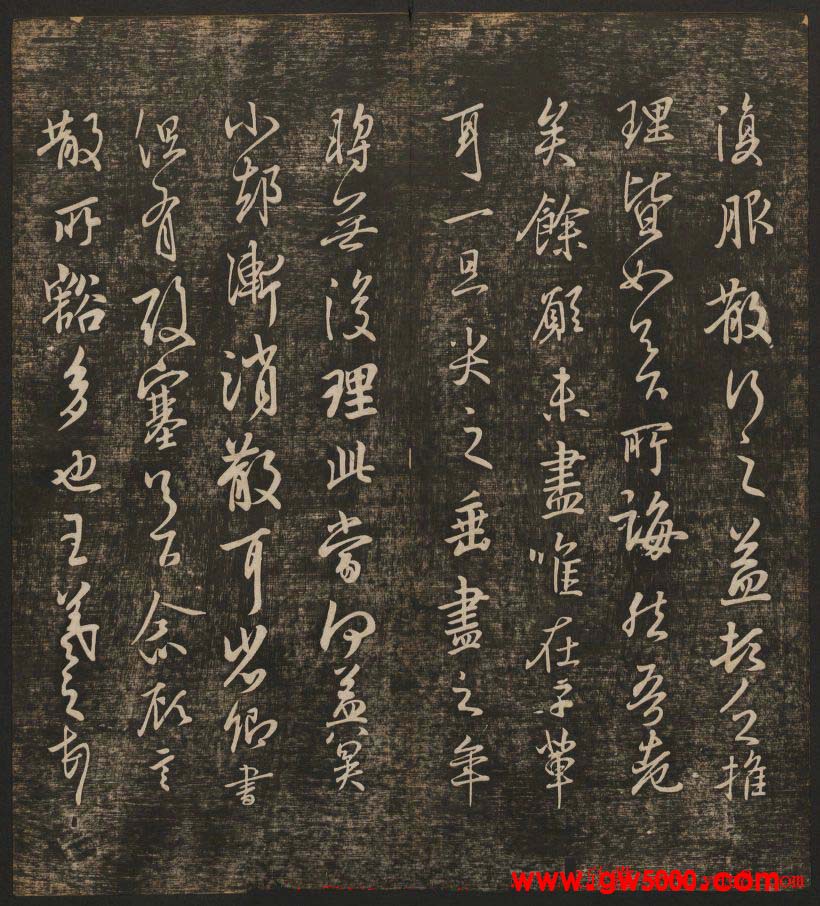 復服散行之益頓乏推
理皆如足下所誨然吾老
矣餘願未盡唯在子輩
耳一旦哭之垂盡之年
將無復理此當何益冀
小却漸消散耳省卿書
但有酸塞足下念故言
散所豁多也王羲之頓首